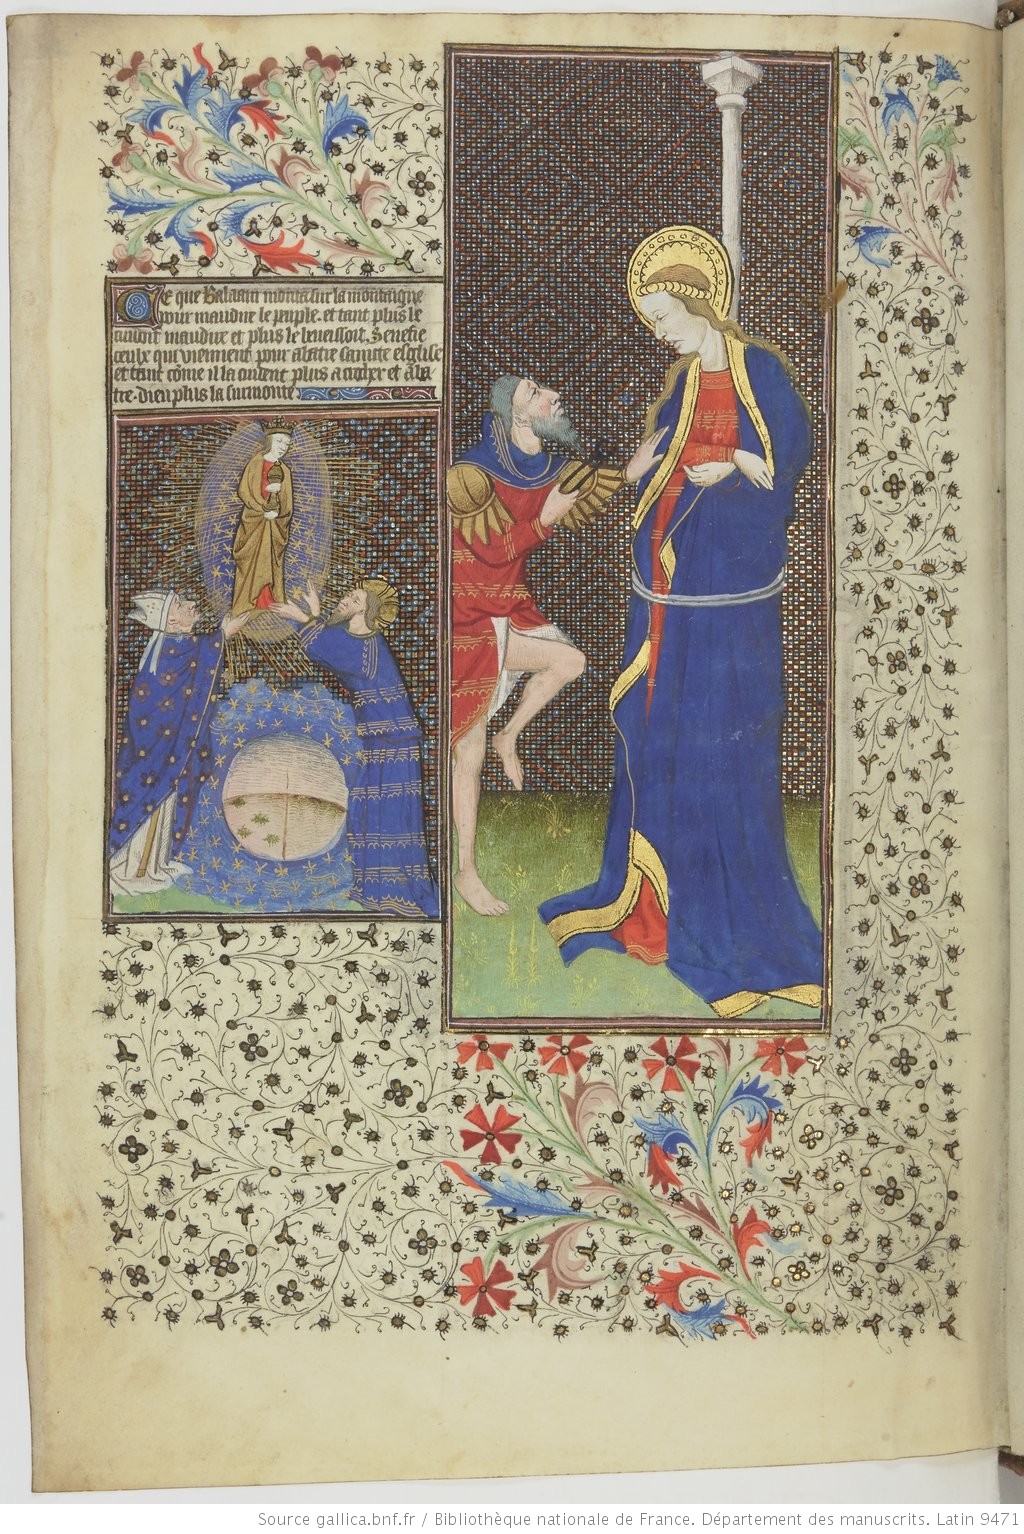 Ce que Balaam monta sur la montaigne
pour maudire le peuple. et tant plus le
cuidoit maudire et plus le beneissoit. Senefie
ceulx qui viennent pour abatre saincte esglise
et tant come il la cuident plus acraber et aba
tre. dieu plus la surmonte
Source gallica.bnf.fr / Bibliothèque nationale de France. Département des manuscrits. Latin 9471